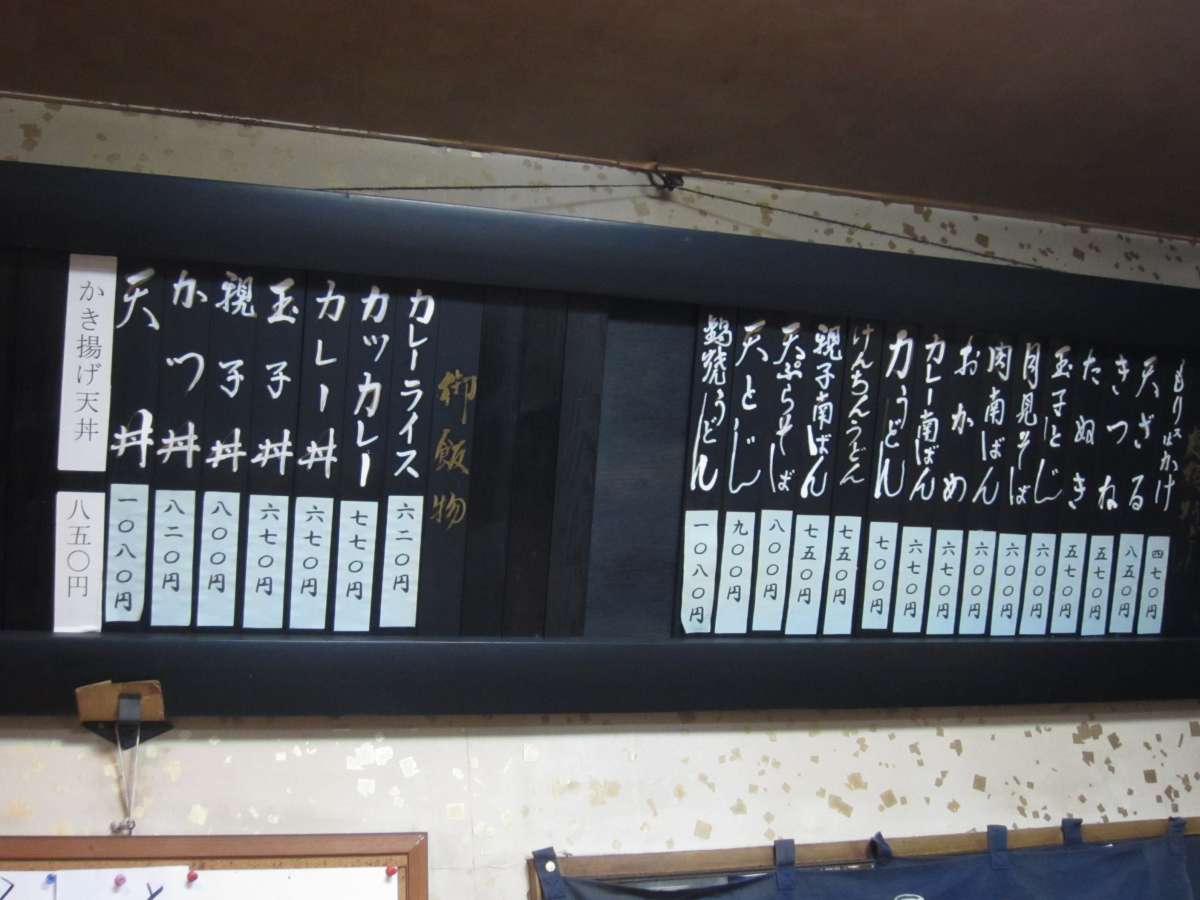 もり又はかけ 四七〇円
天ざる 八五〇円
きつね 五七〇円
たぬき 五七〇円
玉子とじ 六〇〇円
月見そば 六〇〇円
肉南ばん 六〇〇円
おかめ 六七〇円
カレー南ばん 六七〇円
力うどん 七〇〇円
けんちんうどん 七五〇円
親子南ばん 七五〇円
天ぷらそば 八〇〇円
天とじ 九〇〇円
鍋焼うどん 一〇八〇円
御飯物
カレーライス 六二〇円
カツカレー 七七〇円
カレー丼 六七〇円
玉子丼 六七〇円
親子丼 八〇〇円
かつ丼 八二〇円
天丼 一〇八〇円
かき揚げ天丼 八五〇円